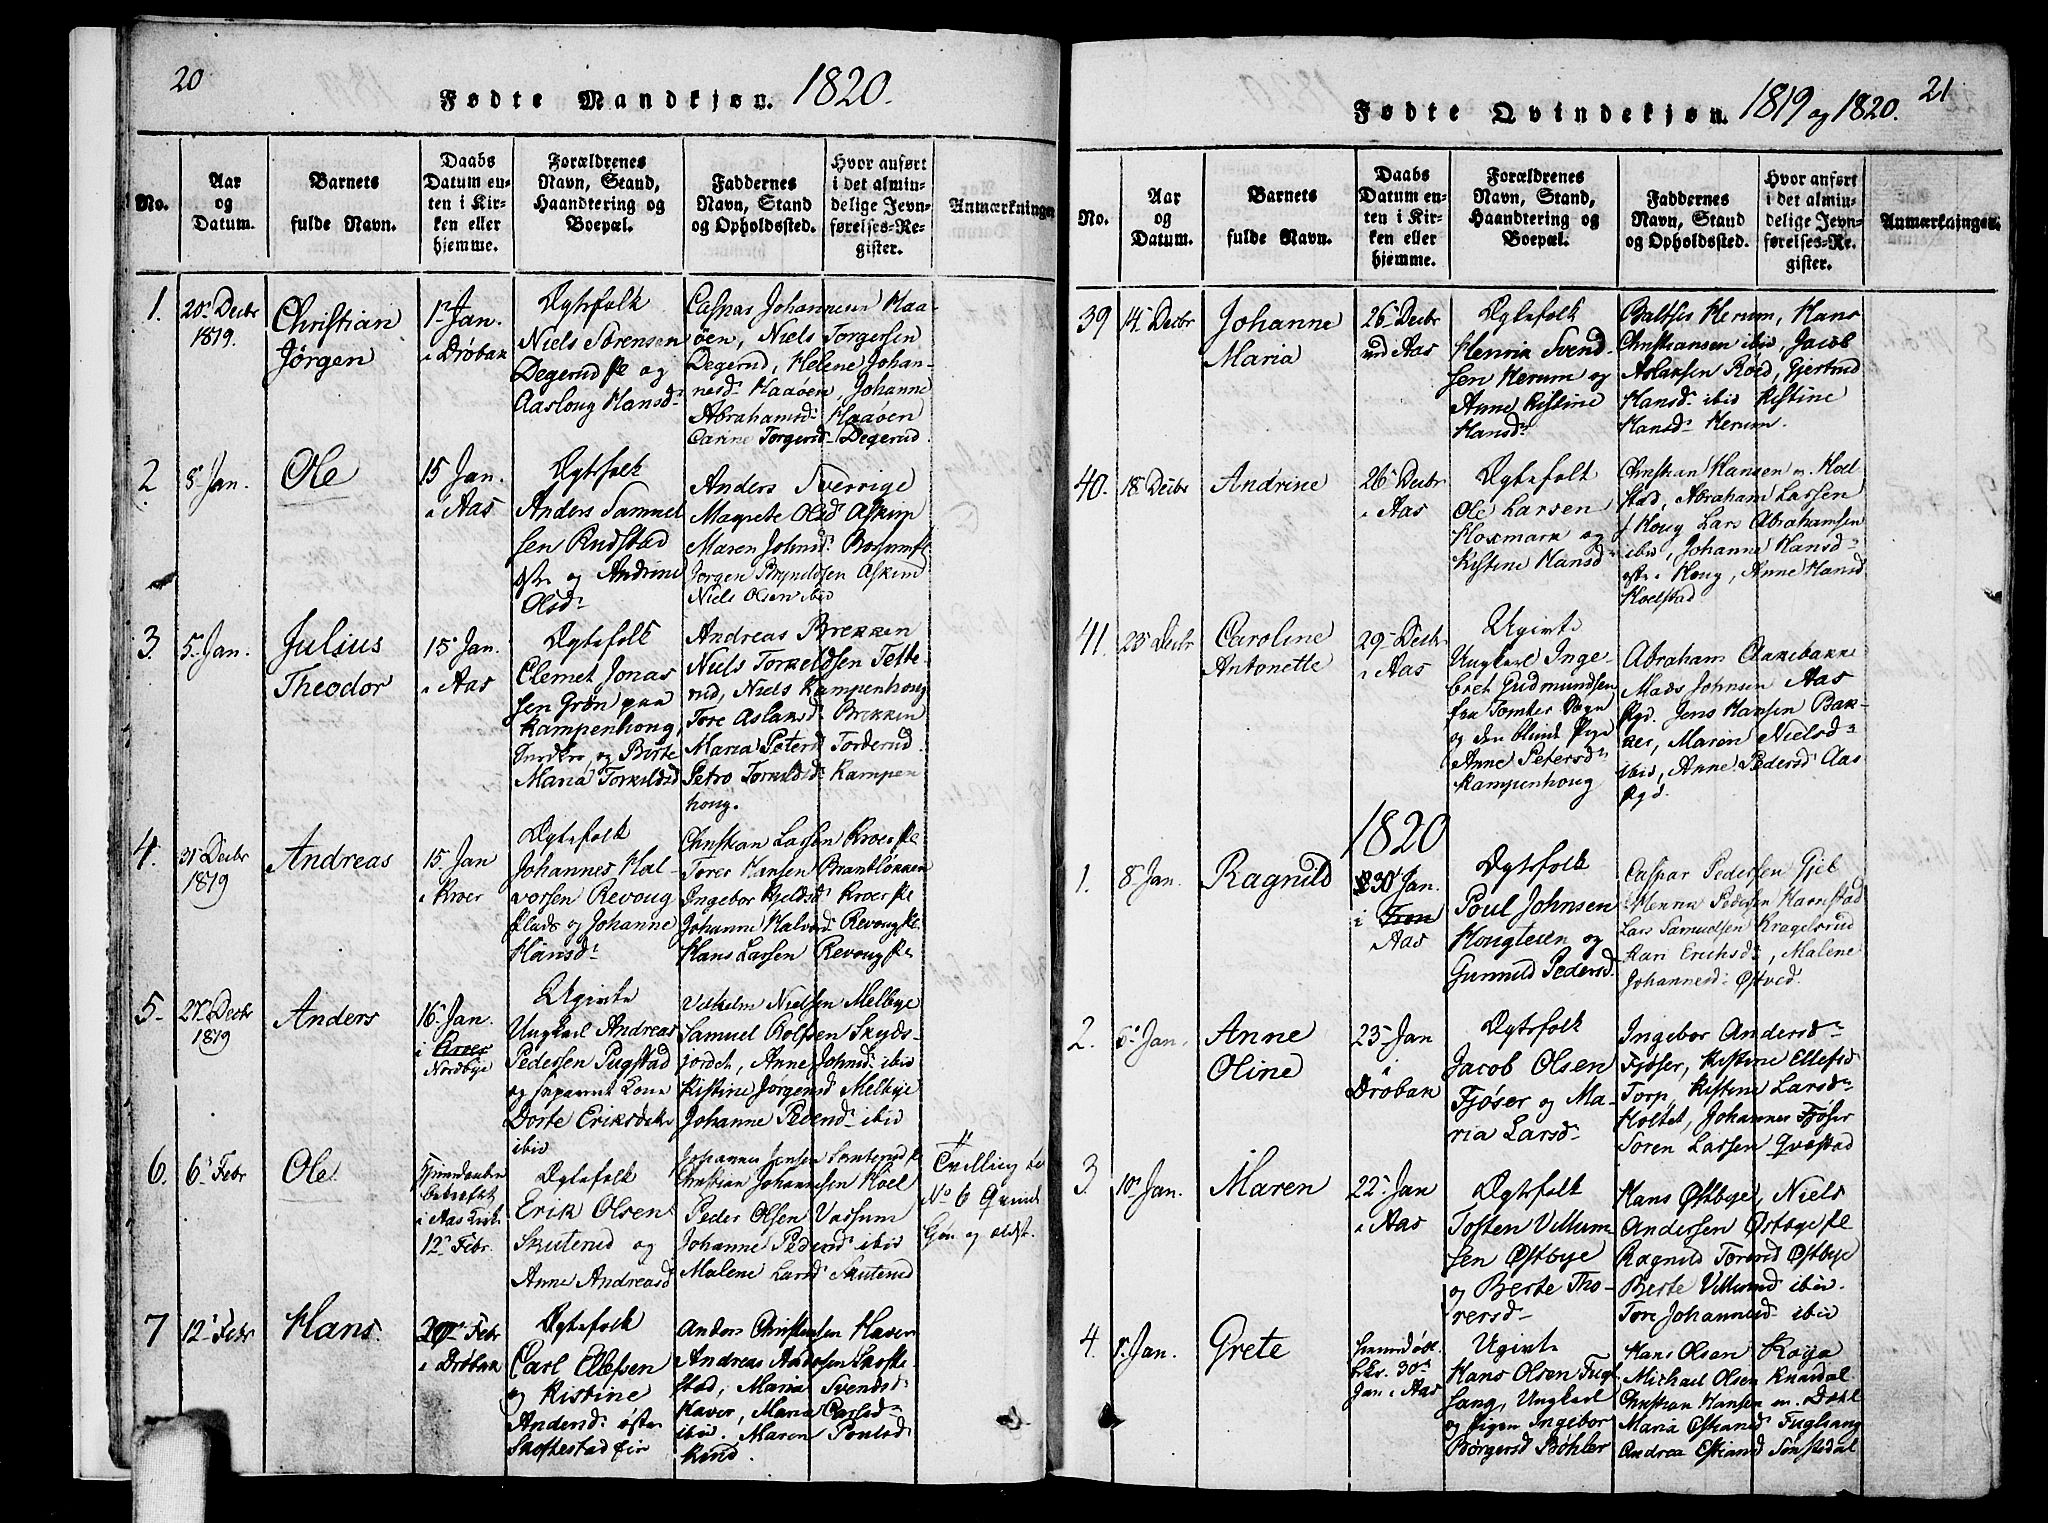 20
Fødte Mandkjøn. 1820.
No.
Aar
og
Datum.
Barnets
fulde Navn.
Daabs
Datum en-
ten i Kir-
ken eller
hjemme.
Forældrenes
Navn, Stand,
Haandtering og
Boepæl.
Faddernes
Navn, Stand
og Opholdssted.
Hvor anført
i det almin-
delige Jevn-
førelses-Re-
gister.
Anmærkninger
1.
20 Decbr
1819.
Christian
Jörgen
1 Jan.
i Dröbak
Ægtefolk
Niels Sörensen
Degerud
og
Aasloug Hansd
Caspar Johannesen Haa-
öen, Niels Torgersen
Degerud, Helene Johan-
nesd Haaöen, Johanne
Abrahamsd Haaöen
Carine Torgersd Degerud.
2
8 Jan.
Ole
15 Jan.
i Aas
Ægtefolk
Anders Samuel
sen Rudstad
og Andrine
Olsd
Anders Sverrige
Magrete Olsd Askim
Maren Johnsd
Jörgen Askim
Niels Olsen ibid
3.
5 Jan.
Julius
Theodor
15 Jan.
i Aas
Ægtefolk
Clemet Jonas
sen Grön paa
Kampenhoug,
og Birte
Maria Torkildsd
Andreas Brekken
Niels Torkeldsen Tette-
rud, Niels Kampenhoug
Tore Aslaksd Brekken
Maria Petersd Torderud
Petro Torkildsd Kampen
houg.
4.
31 Decbr
1819
Andreas
15 Jan
i Kroer
Ægtefolk
Johannes Hal-
vorsen Revoug
og Johanne
Hansd
Christian Larsen Kroer
Torer Hansen Brantlökken
Ingebor Kjeldsd Kroer
Johanne Halvord Revoug
Hans Larsen Revoug
5.
27 Decbr
1819
Anders
16 Jan.
i Kroer
Nordbye
Ugivte
Ungkarl Andreas
Pedersen Pugstad
og separert Kone
Dorte Eriksdatter
ibid
Vilhelm Nielsen Melbye
Samuel Rolfsen Skyds-
jordet, Anne Johnsd ibid
Kistine Jörgensd Melbye
Johanne Pedersd ibid
6.
6 Febr
Ole
Hjemmedøbt
bekræftet
i Aas Kirk
12 Febr.
Ægtefolk
Erik Olsen
Skuterud og
Anne Andreasd
Johannes Jensen Skuterud
Christian Johannesen Hoel
Peder Olsen Vassum
Johanne Pedersd ibid
Malene Larsd Skuterud
Tvilling til
No 6 Qvinde
Kjøn og ældst.
7
12 Febr
Hans
20 Febr
i Dröbak
Ægtefolk
Carl Ellefsen
og Kistine
Andersd
Skoftestad
Anders Christensen Haver
Andreas Andersen Skofte-
stad, Maria Svendsd
Haver, Maria Carlsd
ibid. Maren Poulsd
Kind.
21
Fødte Qvindekjøn. 1819 og 1820.
No.
Aar
og
Datum.
Barnets
fulde Navn.
Daabs
Datum en-
ten i Kir-
ken eller
hjemme.
Forældrenes
Navn, Stand,
Haandtering og
Boepæl.
Faddernes
Navn, Stand
og Opholdssted.
Hvor anført
i det almin-
delige Jevn-
førelses-Re-
gister.
Anmærkninger.
39
14 Decbr
Johanne
Maria
26 Decbr
ved Aas
Ægtefolk
Henrik Svend-
sen Herum og
Anne Kistine
Hansd
Baltser Herum, Hans
Christiansen ibid, Jacob
Aslaksen Roed, Gjertrud
Hansd ibid Kistine
Hansd Herum.
40.
18 Decbr
Andrine
26 Decbr
i Aas
Ægtefolk
Ole Larsen
Hoxmark og
Kistine Hansd
Christian Hansen Hoel
stad, Abraham Larsen
Houg Lars Abrahamsen
ibid, Johanne Hansd
Houg, Anne Hansd
Hoelstad
41.
23 Decbr
Caroline
Antonette
29 Decbr
i Aas
Ugivte
Ungkarl Inge-
bret Gudmundsen
fra Tomter Sogn
og den blinde Pige
Anne Petersd
Kampenhoug
Abraham Aakebakke
Mads Johnsen Aas
Pgd. Jens Hansen Bak-
ker, Maren Nielsd
ibid, Anne Pedersd Aas
Pgd.
1820
1.
8 Jan.
Ragnild
30 Jan.
i
Aas
Ægtefolk
Poul Johnsen
Hougteien og
Gunnild Pedersd
Caspar Pedersen
Pedersen Harestad
Lars Samuelsen Kragelsrud
Kari Erichsd, Malene
Johannesd Østved
2.
5 Jan.
Anne
Oline
23 Jan
i
Dröbak
Ægtefolk
Jacob Olsen
Fjöser og Ma-
ria Larsd
Ingebor Andersd
Fjöser, Kistine Ellefsd
Torp, Kistine Larsd
Holtet, Johannes Fjöser
Sören Larsen Qvestad
3.
10 Jan.
Maren
22 Jan
i Aas
Ægtefolk
Tosten Villum-
sen Østbye
og Berte Tho-
rersd
Hans Østbye, Niels
Andersen Østbye
Ragnild Torersd Østbye
Berte Villumsd ibid.
Tore Johannesd ibid
4.
8 Jan.
Grete
30
Jan i Aas
Ugivte
Hans Olsen Fugl
sang, Ungkarl
og Pigen Ingebor
Börgersd Böhler
Hans Olsen Koga
Michael Olsen Knardal
Christian Hansen Dahl
Maria Fuglsang
Andrea Sönstedal